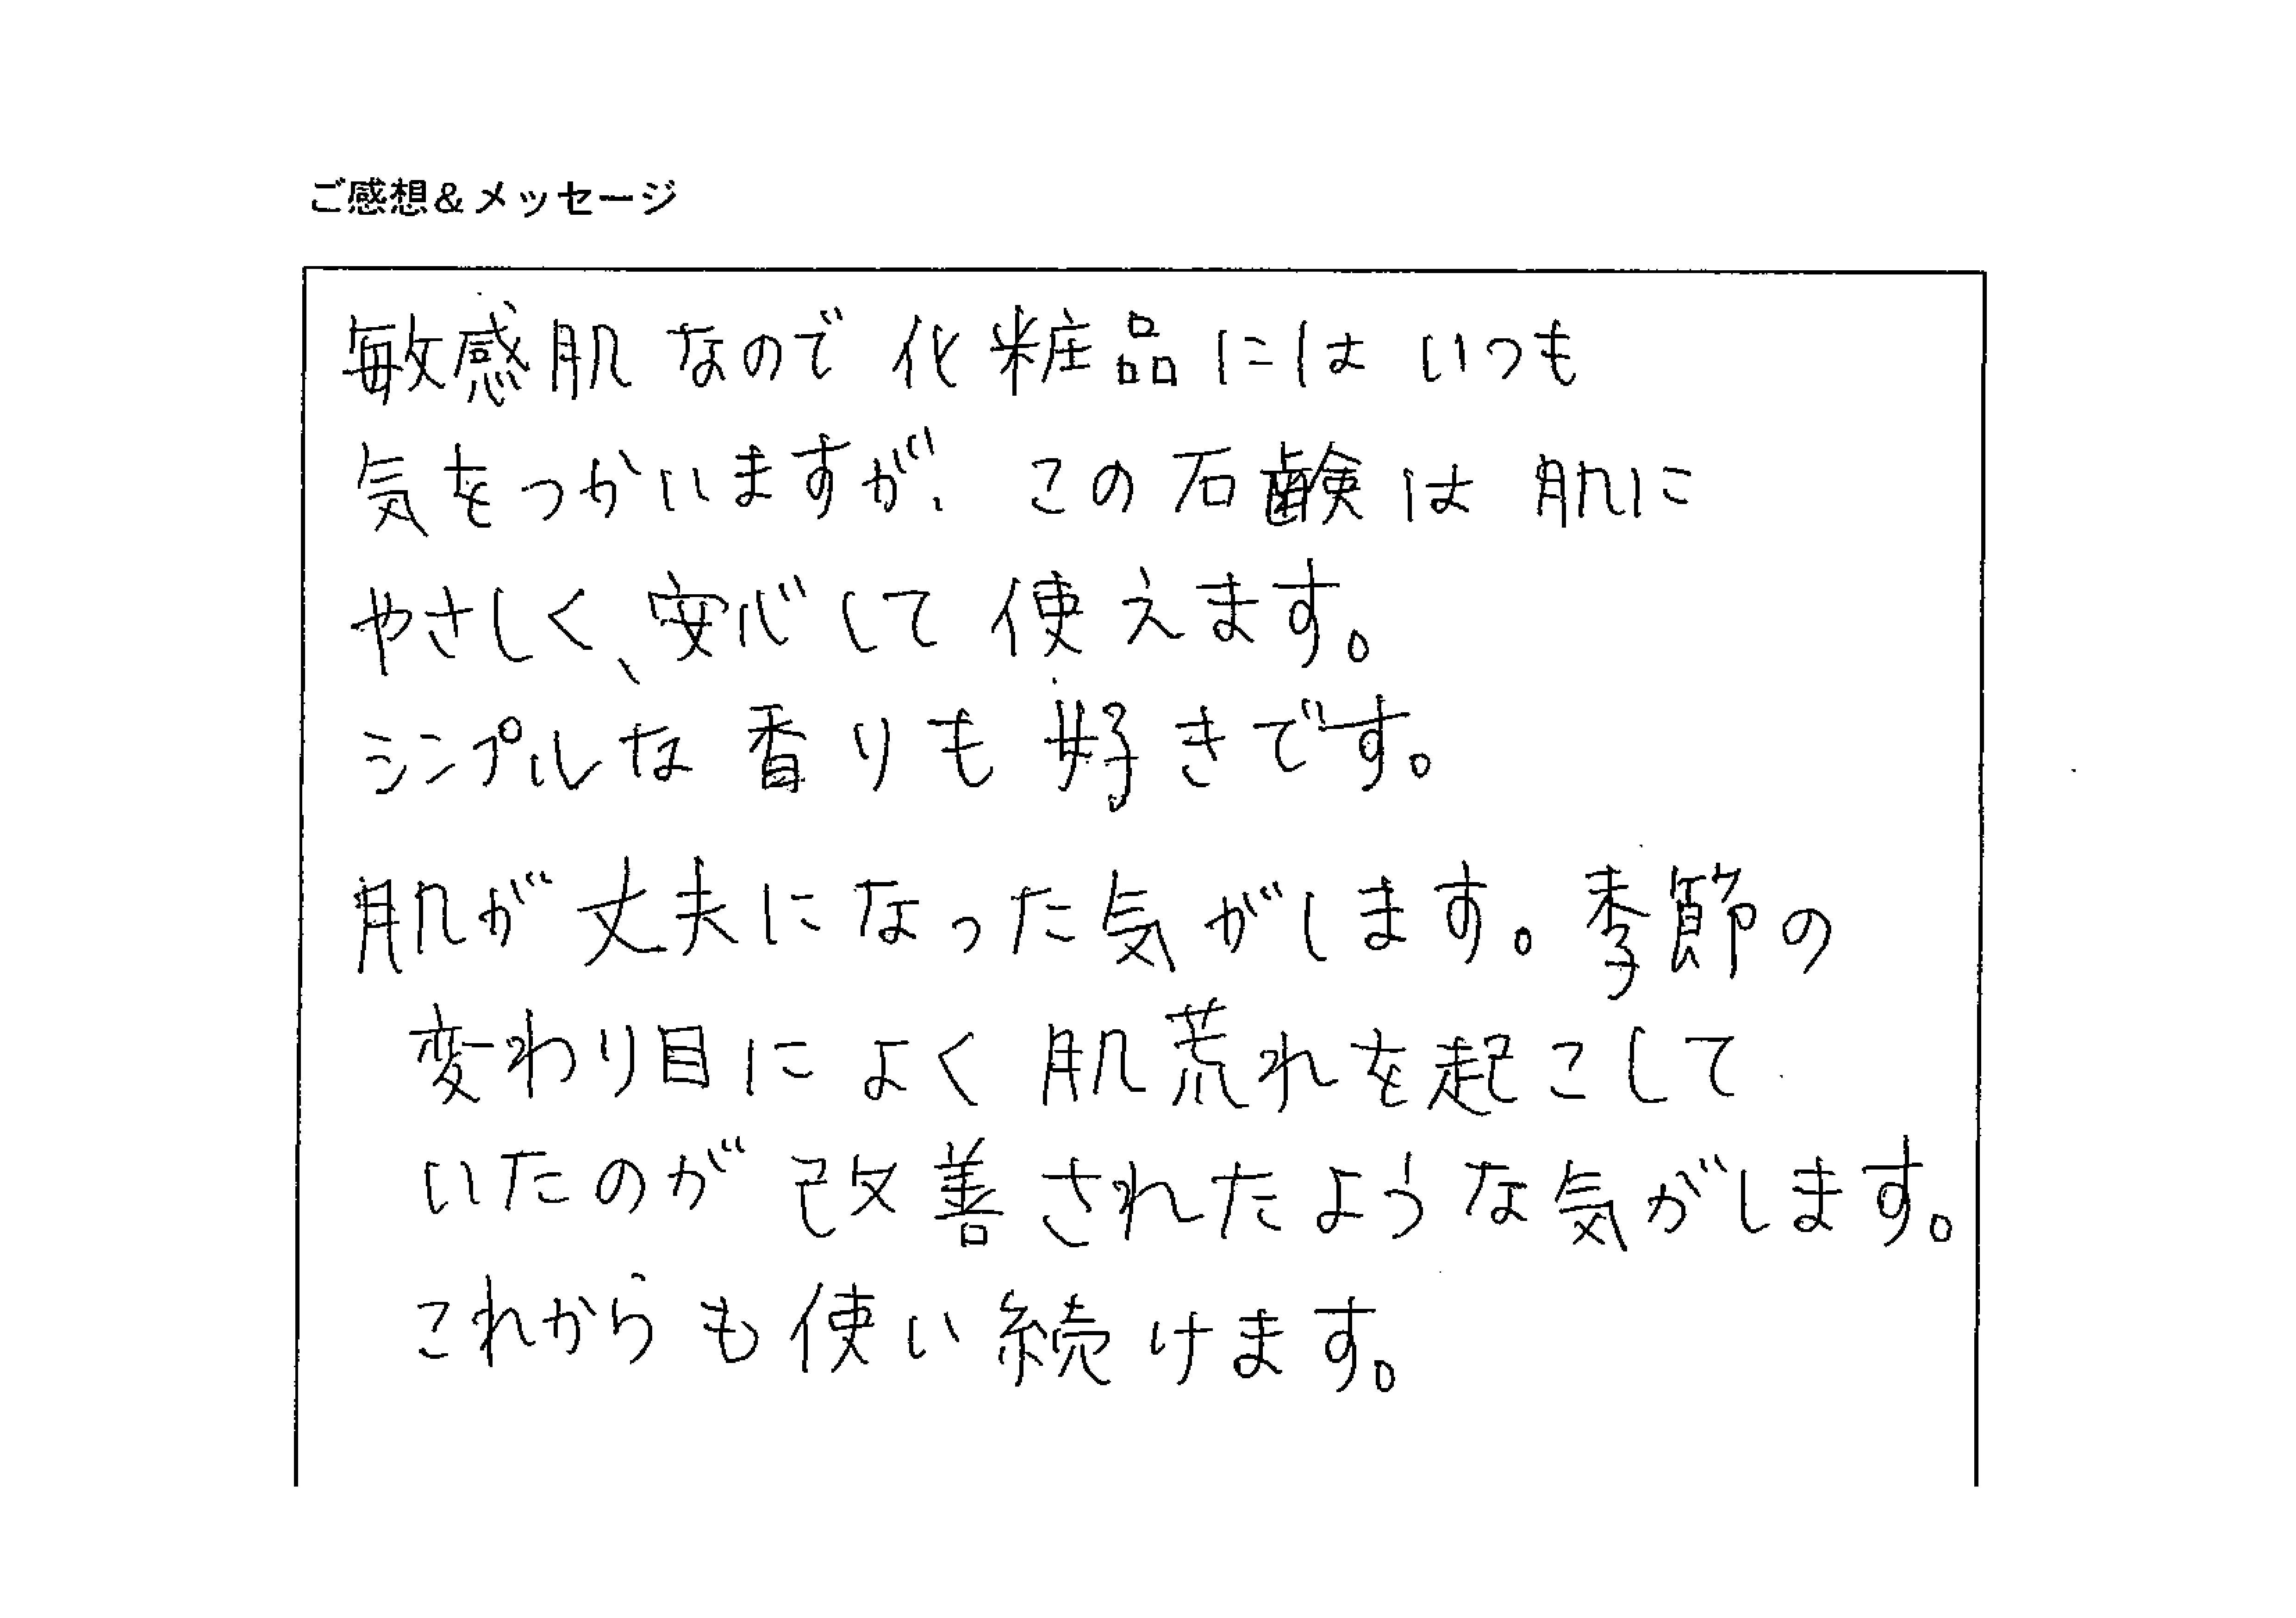 ご感想&メッセージ
敏感肌なので化粧品にはいつも
気をつかいますが、この石鹸は肌に
やさしく、安心して使えます。
シンプルな香りも好きです。
肌が丈夫になった気がします。季節の
変わり目によく肌荒れを起こして
いたのが改善されたような気がします。
これからも使い続けます。